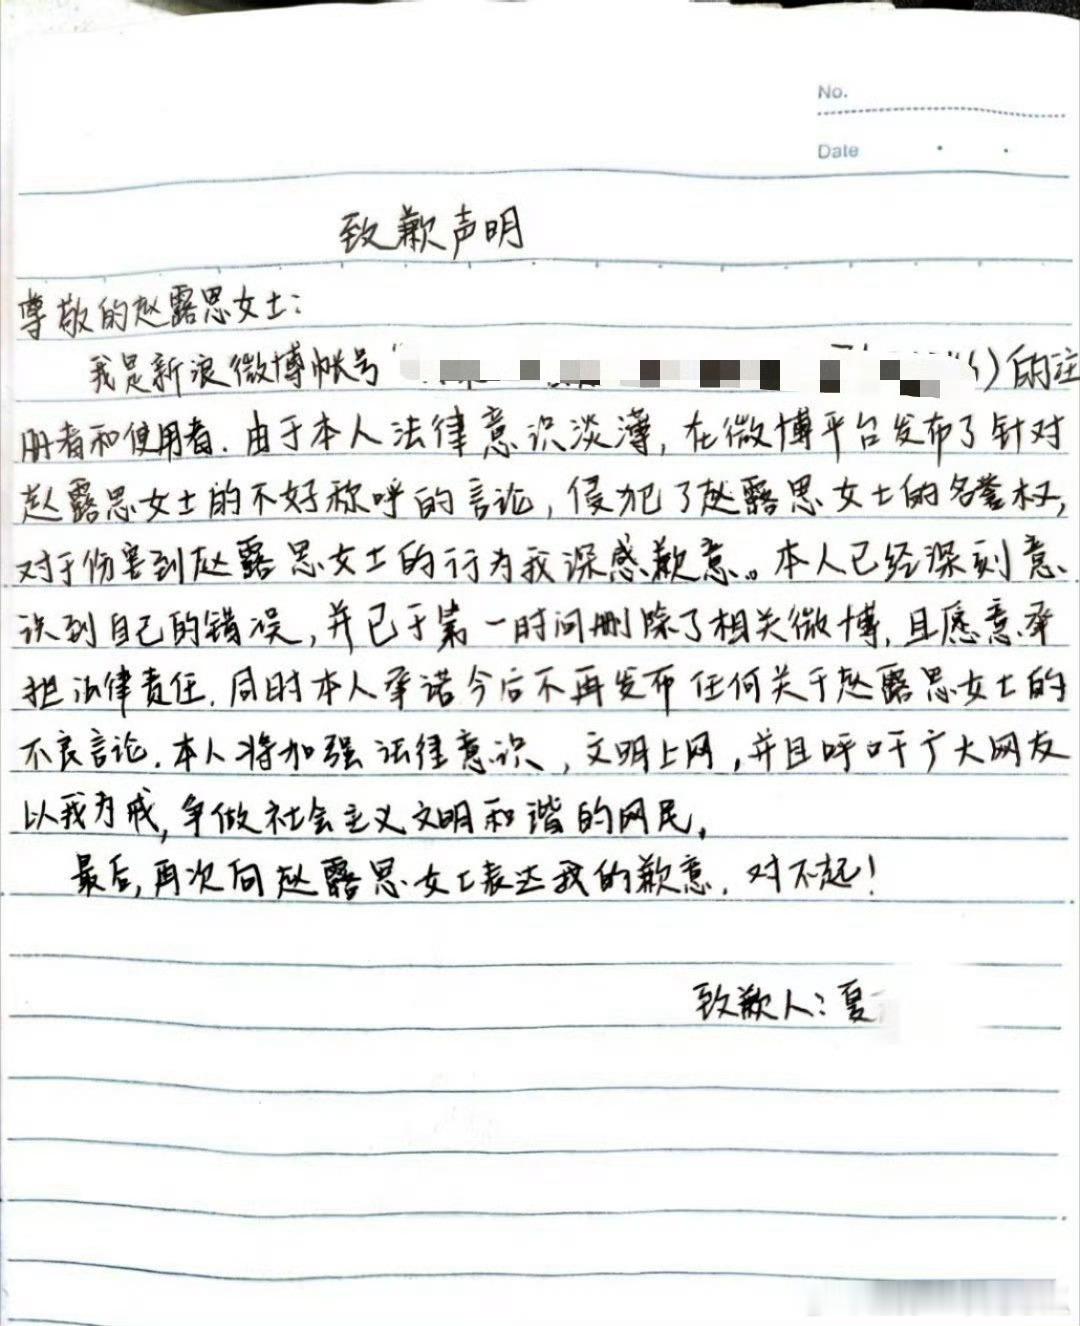 No.
Date
致歉声明
尊敬的赵露思女士:
我是新浪微博帐号“ )的注
册者和使用者.由于本人法律意识淡薄,在微博平台发布了针对
赵露思女士的不好称呼的言论,侵犯了赵露思女士的名誉权,
对于伤害到赵露思女士的行为我深感歉意。本人已经深刻意
识到自己的错误,并已于第一时间删除了相关微博,且愿意承
担法律责任.同时本人承诺今后不再发布任何关于赵露思女士的
不良言论.本人将加强法律意识,文明上网,并且呼吁广大网友
以我为戒,争做社会主义文明和谐的网民.
最后,再次向赵露思女士表达我的歉意.对不起!
致歉人:夏